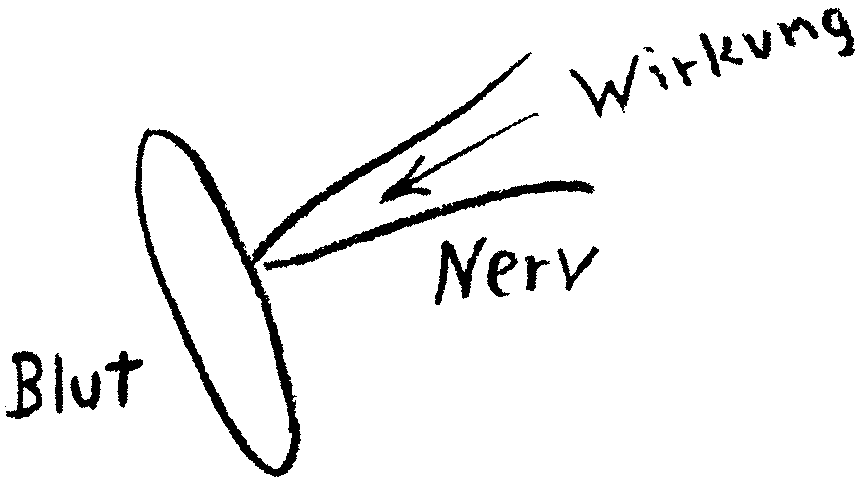 Wirkung
Nerv
Blut